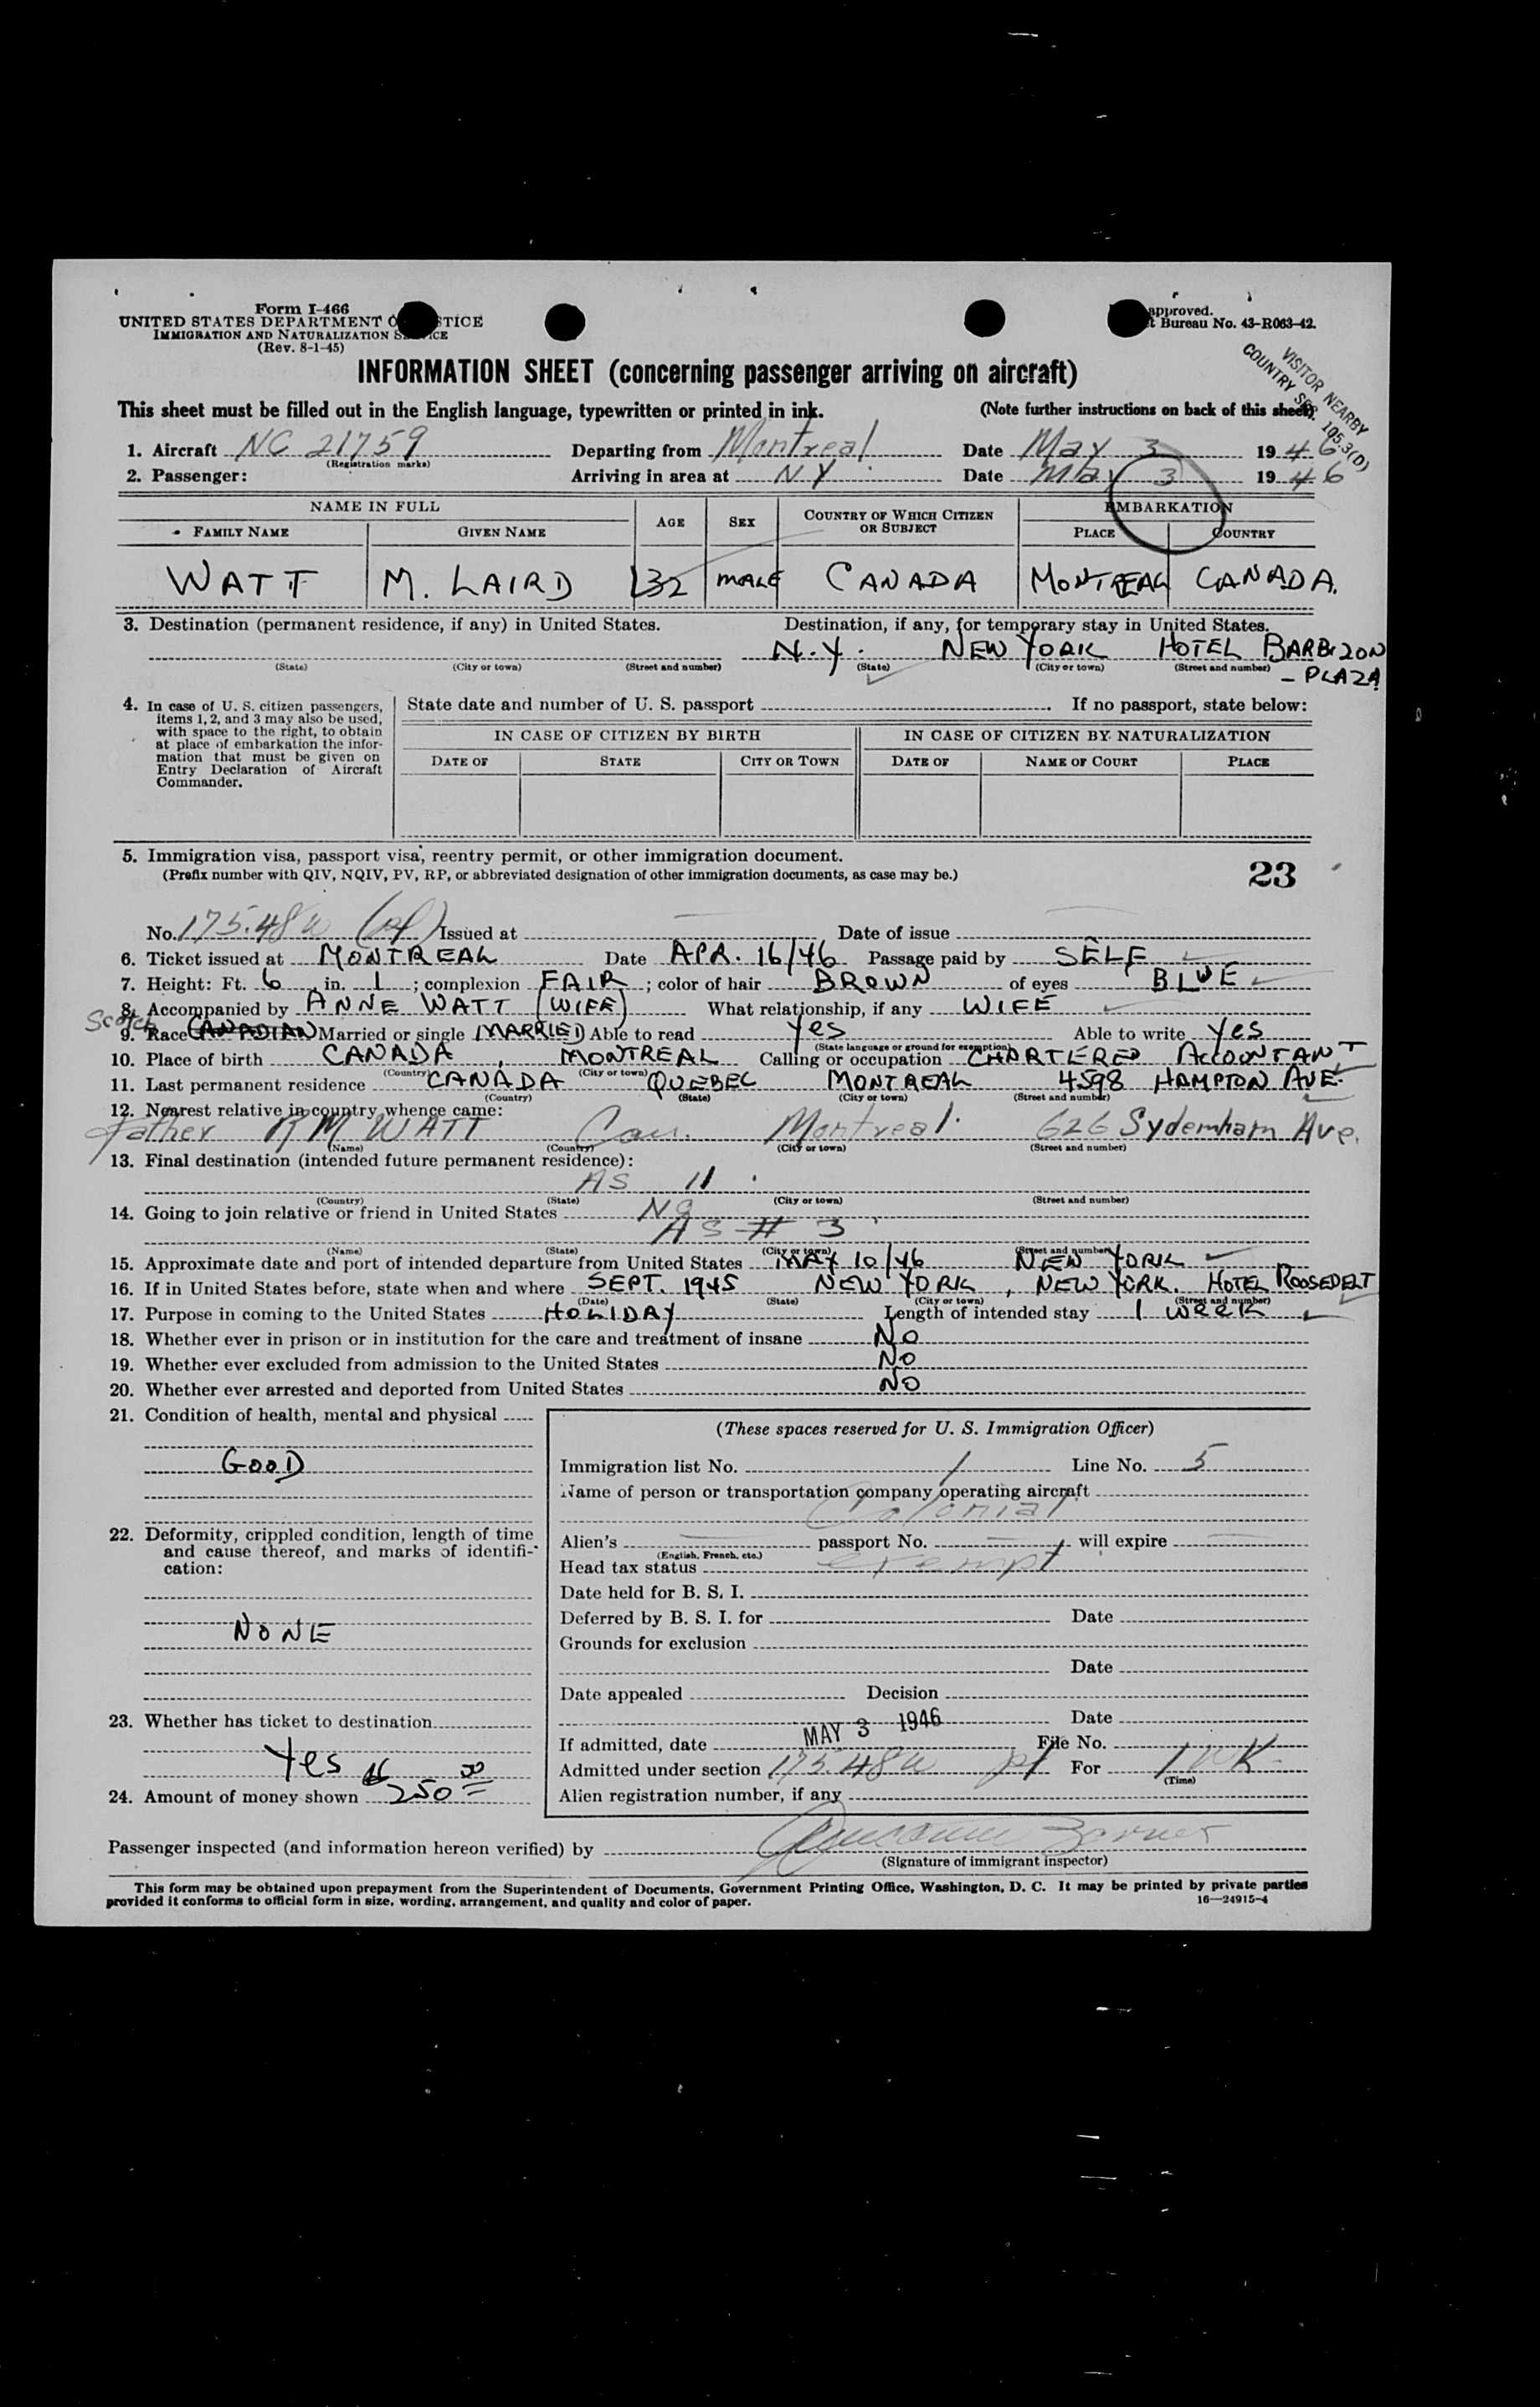 Form I-466
UNITED STATES DEPARTMENT O STICE
IMMIGRATION AND NATURALIZATION S ICE
(Rev. 8-1-45)
approved.
t Bureau No. 43-R063-42.
VISITOR NEARBY
COUNTRY SEC. 105.3(D)
INFORMATION SHEET (concerning passenger arriving on aircraft)
This sheet must be filled out in the English language, typewritten or printed in ink. (Note further instructions on back of this sheet)
1. Aircraft NC 21759 Departing from Montreal Date May 3 1946
(Registration marks)
2. Passenger: Arriving in area at N.Y. Date May 3 1946
NAME IN FULL AGE SEX COUNTRY OF WHICH CITIZEN OR SUBJECT EMBARKATION
FAMILY NAME GIVEN NAME PLACE COUNTRY
WATT M. LAIRD 32 MALE CANADA MONTREAL CANADA.
3. Destination (permanent residence, if any) in United States. Destination, if any, for temporary stay in United States.
N.Y. NEW YORK HOTEL BARBIZON
(State) (City or town) (Street and number) (State) (City or town) (Street and number) - PLAZA
4. In case of U. S. citizen passengers,
items 1, 2, and 3 may also be used,
with space to the right, to obtain
at place of embarkation the infor-
mation that must be given on
Entry Declaration of Aircraft
Commander.
State date and number of U. S. passport . If no passport, state below:
IN CASE OF CITIZEN BY BIRTH IN CASE OF CITIZEN BY NATURALIZATION
DATE OF STATE CITY OR TOWN DATE OF NAME OF COURT PLACE
5. Immigration visa, passport visa, reentry permit, or other immigration document.
(Prefix number with QIV, NQIV, PV, RP, or abbreviated designation of other immigration documents, as case may be.)
23
No. 175.48 Issued at Date of issue
6. Ticket issued at MONTREAL Date APR. 16/46 Passage paid by SELF
7. Height: Ft. 6, in. 1; complexion FAIR; color of hair BROWN of eyes BLUE
8. Accompanied by ANNE WATT (WIFE) What relationship, if any WIFE
Scotch
9. Race CANADIAN Married or single MARRIED Able to read Yes Able to write Yes
(State language or ground for exemption)
10. Place of birth CANADA, MONTREAL Calling or occupation CHARTERED ACCOUNTANT
(Country) (City or town)
11. Last permanent residence CANADA QUEBEC MONTREAL 4598 HAMPTON AVE.
(Country) (State) (City or town) (Street and number)
12. Nearest relative in country whence came:
father R M WATT Can. Montreal. 626 Sydemham Ave.
(Name) (Country) (City or town) (Street and number)
13. Final destination (intended future permanent residence):
AS 11.
(Country) (State) (City or town) (Street and number)
14. Going to join relative or friend in United States No
AS # 3
(Name) (State) (City or town) (Street and number)
15. Approximate date and port of intended departure from United States MAY 10/46 NEW YORK
16. If in United States before, state when and where SEPT. 1945 NEW YORK, NEW YORK. HOTEL ROOSEDELT
(Date) (State) (City or town) (Street and number)
17. Purpose in coming to the United States HOLIDAY Length of intended stay 1 WEEK
18. Whether ever in prison or in institution for the care and treatment of insane No
19. Whether ever excluded from admission to the United States No
20. Whether ever arrested and deported from United States No
21. Condition of health, mental and physical
GOOD
22. Deformity, crippled condition, length of time
and cause thereof, and marks of identifi-
cation:
NONE
23. Whether has ticket to destination
Yes
24. Amount of money shown 250 00
(These spaces reserved for U. S. Immigration Officer)
Immigration list No. 1 Line No. 5
Name of person or transportation company operating aircraft
Colonial
Alien's passport No. will expire
(English, French, etc.)
Head tax status exempt
Date held for B. S. I.
Deferred by B. S. I. for Date
Grounds for exclusion
Date
Date appealed Decision
Date
If admitted, date MAY 3 1946 File No.
Admitted under section 175.48 For 1 WK
(Time)
Alien registration number, if any
Passenger inspected (and information hereon verified) by
(Signature of immigrant inspector)
This form may be obtained upon prepayment from the Superintendent of Documents, Government Printing Office, Washington, D. C. It may be printed by private parties
provided it conforms to official form in size, wording, arrangement, and quality and color of paper. 16—24915-4